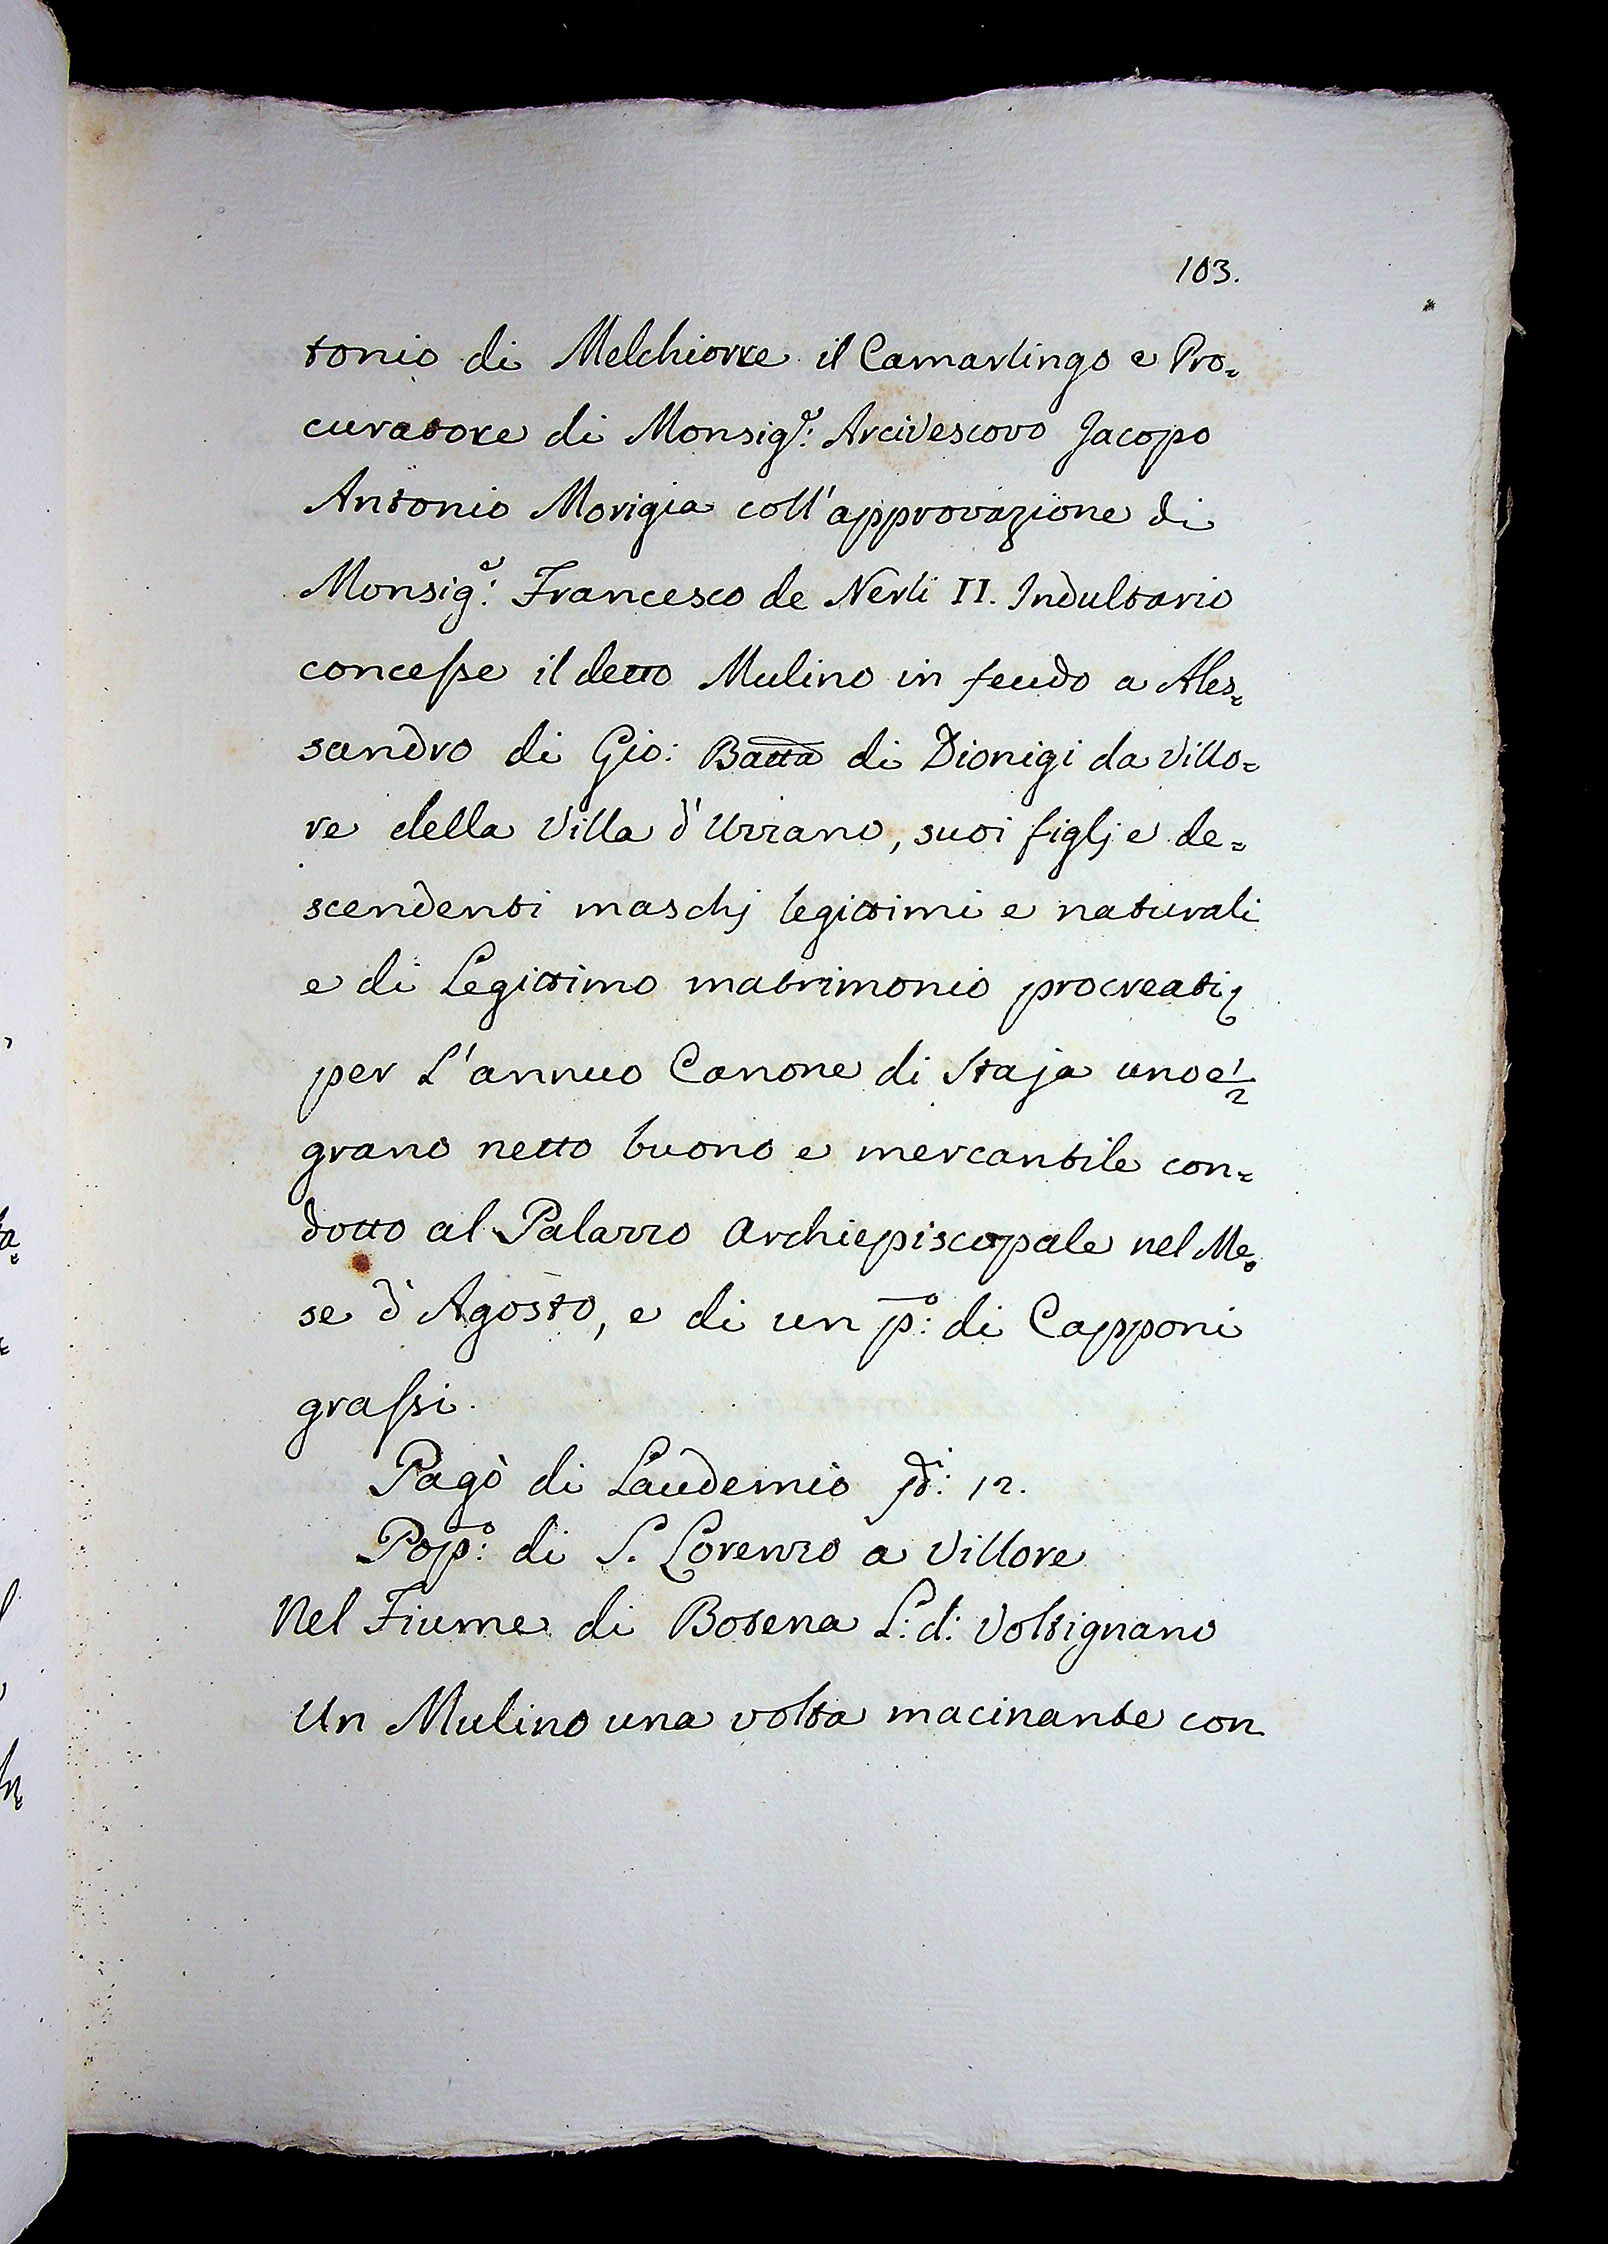 103.
tonio di Melchiorre il Camarlingo e Pro=
curatore di Monsig.r: Arcivescovo Jacopo
Antonio Morigia coll'approvazione di
Monsig.r: Francesco de Nerli II. Indultario
concesse il detto Mulino in feudo a Ales=
sandro di Gio: Batta di Dionigi da Villo=
re della Villa d'Uzzano, suoi figlj e de=
scendenti maschj legittimi e naturali
e di Legittimo matrimonio procreati,
per L'annuo Canone di Staja uno e 1/2
grano netto buono e mercantile con=
dotto al Palazzo Archiepiscopale nel Me=
se d'Agosto, e di un p.o: di Capponi
grassi.
Pagò di Laudemio di: 12.
Pop.o: di S. Lorenzo a Villore
Nel Fiume di Botena L: d: Voltignano
Un Mulino una volta macinante con